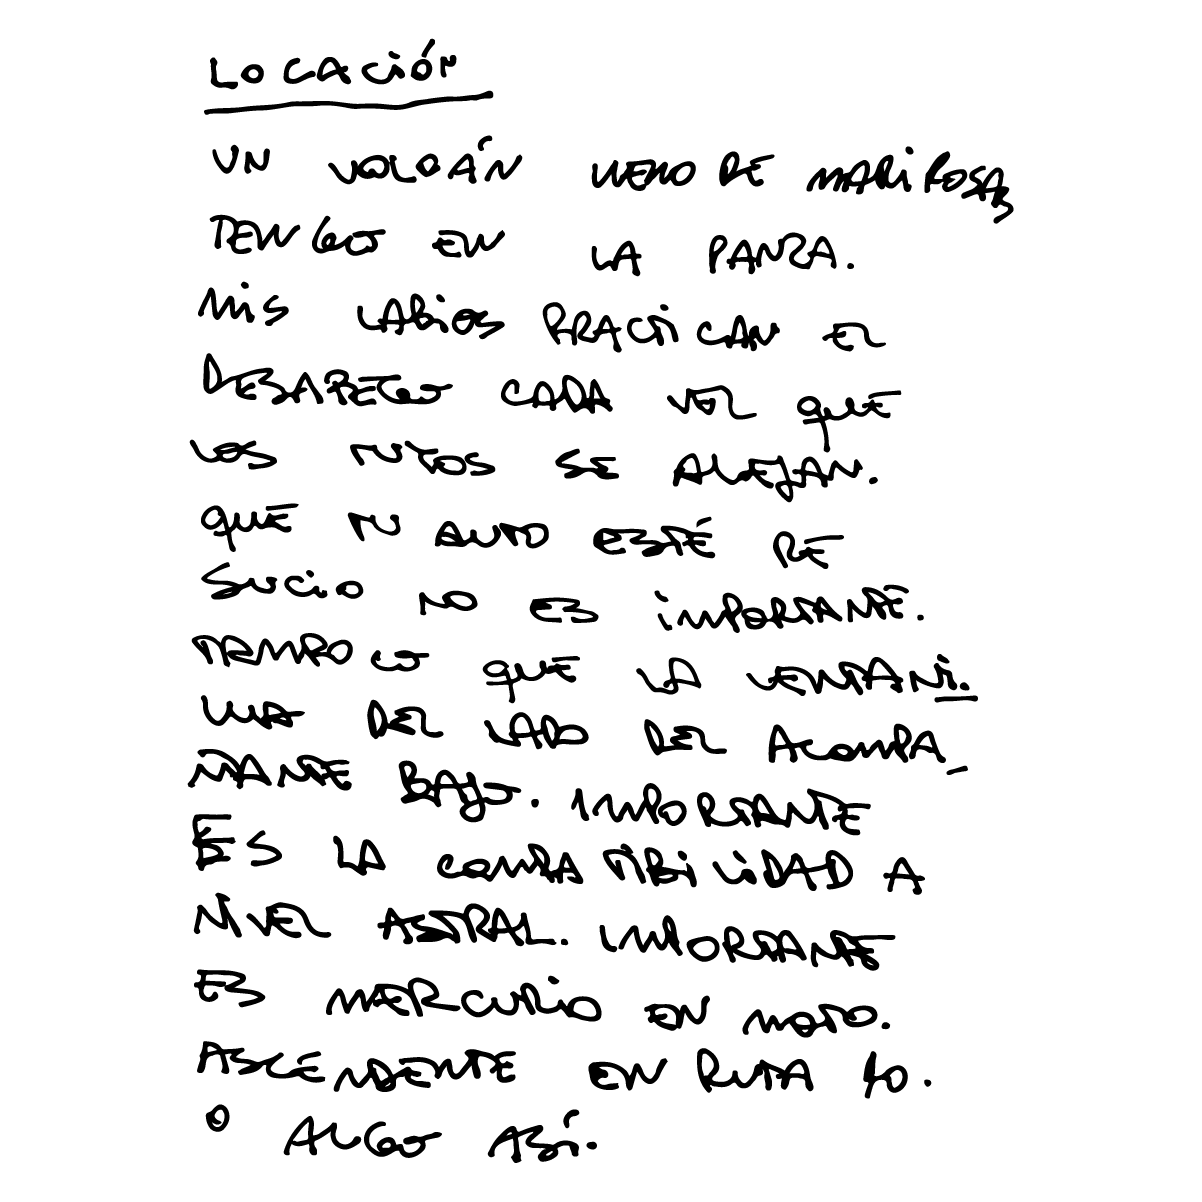 LOCACIÓN
UN VOLCÁN LLENO DE MARIPOSAS
TENGO EN LA PANZA.
MIS LABIOS PRACTICAN EL
DESAPEGO CADA VEZ QUE
LOS TUYOS SE ALEJAN.
QUE TU AUTO ESTÉ RE
SUCIO NO ES IMPORTANTE.
TAMPOCO QUE LA VENTANI-
LLA DEL LADO DEL ACOMPA-
ÑANTE BAJO. IMPORTANTE
ES LA COMPATIBILIDAD A
NIVEL ASTRAL. IMPORTANTE
ES MERCURIO EN MOTO.
ASCENDENTE EN RUTA 40.
O ALGO ASÍ.